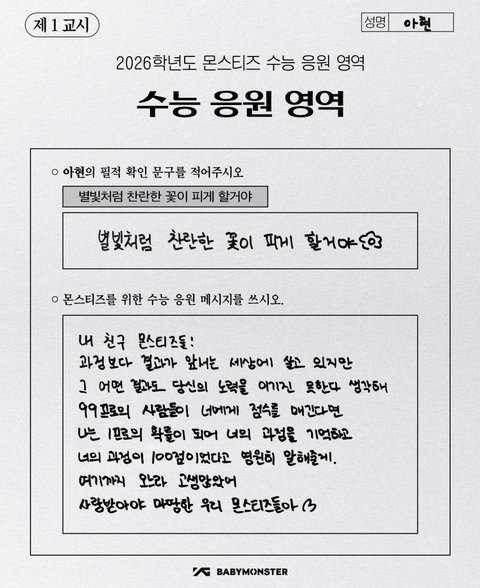 제 1 교시
성명 아현
2026학년도 몬스티즈 수능 응원 영역
수능 응원 영역
○ 아현의 필적 확인 문구를 적어주시오
별빛처럼 찬란한 꽃이 피게 할거야
별빛처럼 찬란한 꽃이 피게 할거야
○ 몬스티즈를 위한 수능 응원 메시지를 쓰시오.
내 친구 몬스티즈들!
과정보다 결과가 앞서는 세상에 살고 있지만
그 어떤 결과도 당신의 노력을 이기진 못한다 생각해
99프로의 사람들이 너에게 점수를 매긴다면
나는 1프로의 확률이 되어 너의 과정을 기억하고
너의 과정이 100점이었다고 영원히 말해줄게.
여기까지 오느라 고생많았어
사랑받아야 마땅한 우리 몬스티즈들아 <3
YG BABYMONSTER